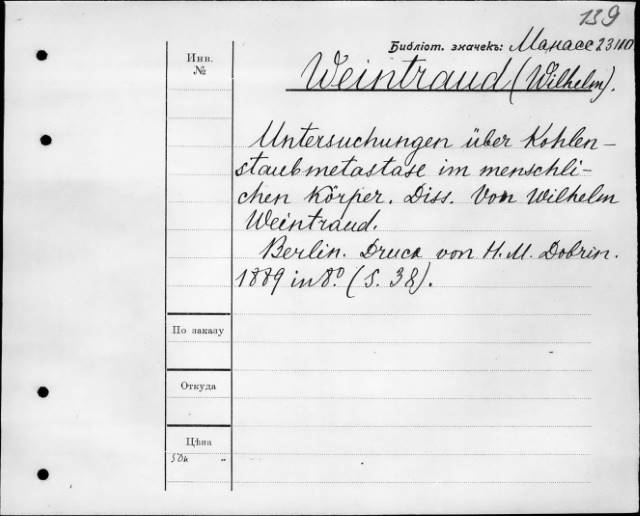 139
Библіот. значекъ: Манассе 23110
Инв.
№
Weintraud (Wilhelm).
Untersuchungen über Kohlen-
staubmetastase im menschli-
chen Körper. Diss. Von Wilhelm
Weintraud.
Berlin. Druck von H. M. Dobrin.
1889 in 8º. (S. 38).
По заказу
Откуда
Цѣна
50k "